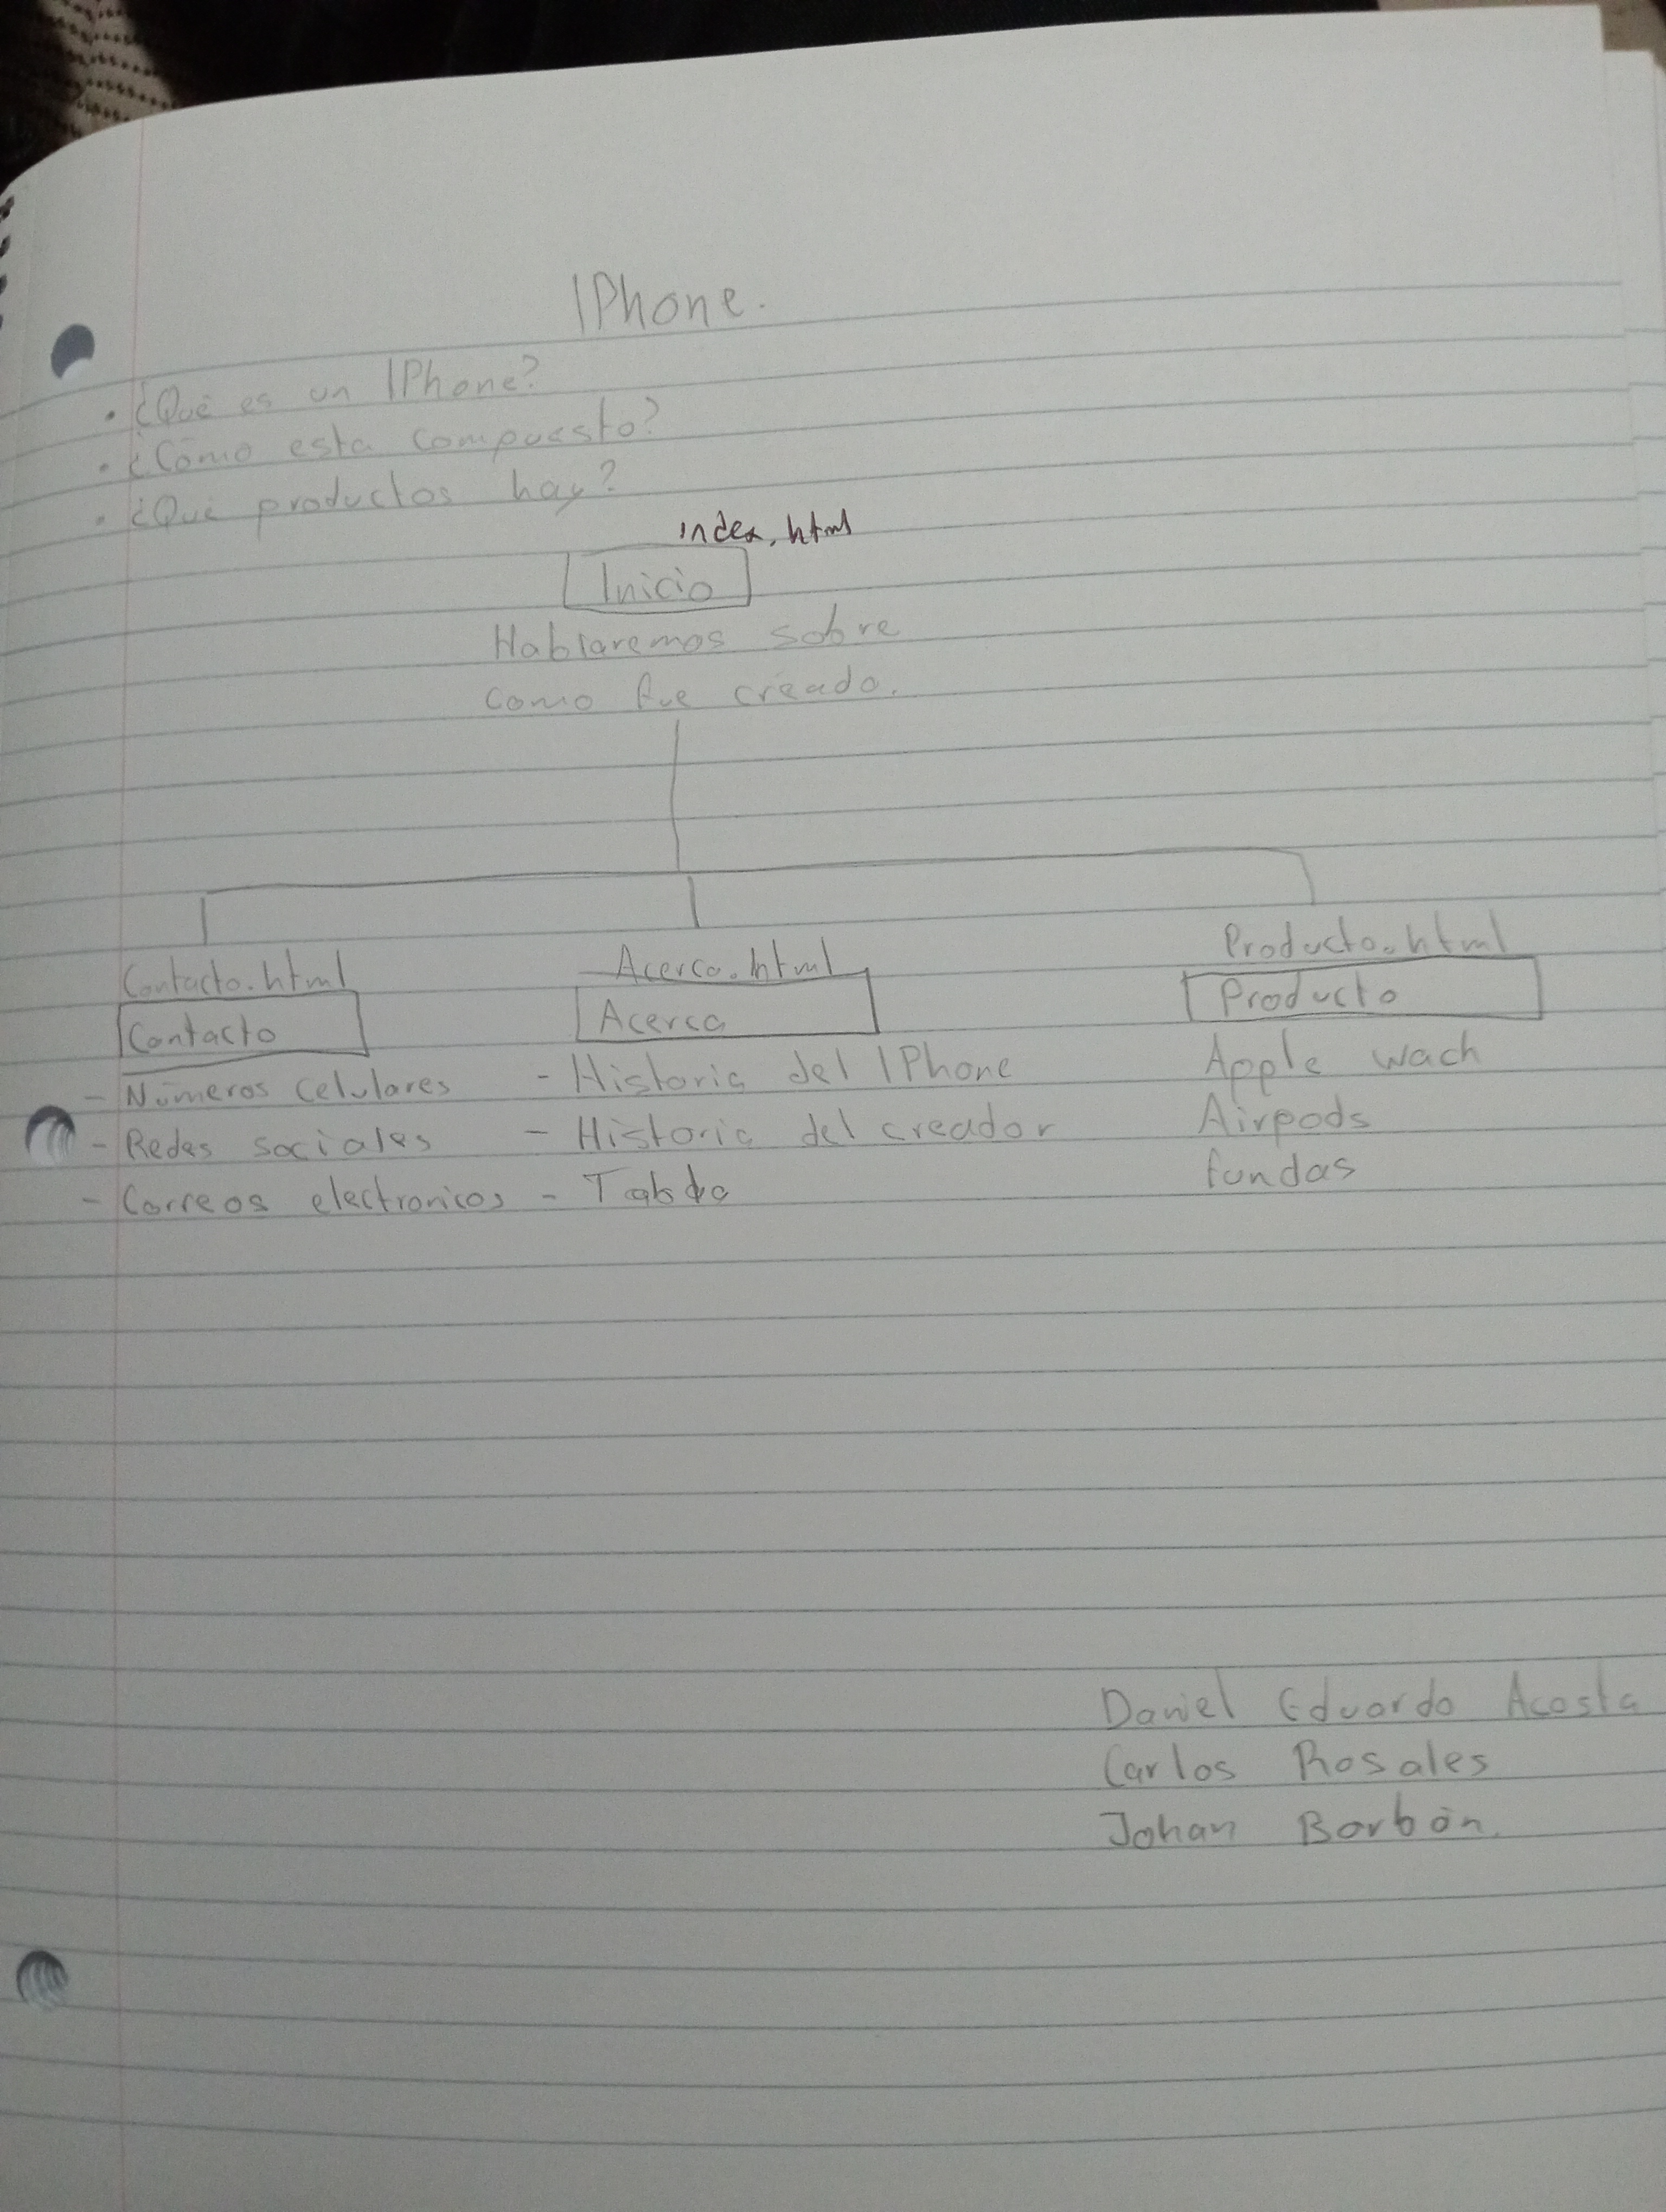 IPhone.
• ¿Qué es un IPhone?
• ¿Cómo esta compuesto?
• ¿Qué productos hay?
index.html
Inicio
Hablaremos sobre
como fue creado.
Contacto.html
Contacto
- Números celulares
- Redes sociales
- Correos electronicos
Acerca.html
Acerca
- Historia del IPhone
- Historia del creador
-
Producto.html
Producto
Apple wach
Airpods
fundas
Daniel Eduardo Acosta
Carlos Rosales
Johan Borbón.